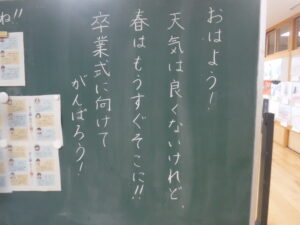 おはよう!
天気は良くないけれど、
春はもうすぐそこに!!
卒業式に向けて
がんばろう!
ね!!